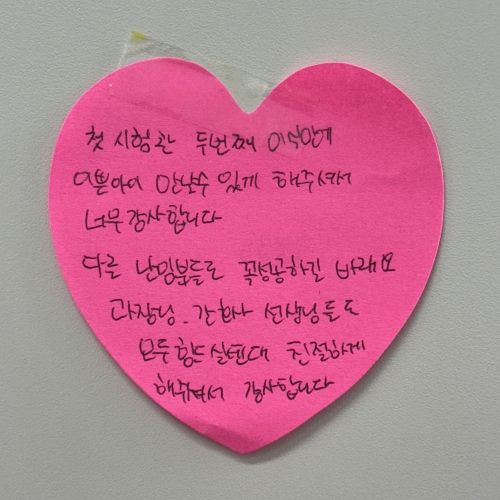 첫 시험관 두번째 이식만에
이쁜아이 만날수 있게 해주셔서
너무 감사합니다
다른 난임분들도 꼭성공하길 바래요
과장님. 간호사 선생님들도
모두 힘드실텐데 친절하게
해주셔서 감사합니다